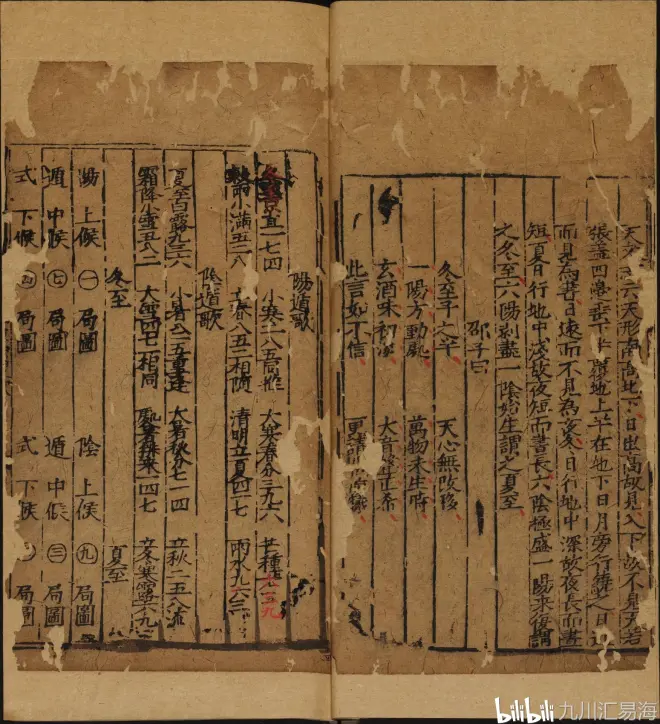 天文 六天形南高北下日出高故見入下故不見天若
張蓋四邊垂下半覆地上半在地下日月旁行繞之日近
而見為晝日遠而不見為夜冬日行地中深故夜長而晝
短夏日行地中淺故夜短而晝長六陰極盛一陽來復謂
之冬至六陽剥盡一陰始生謂之夏至
邵子曰
冬至子之半 天心無改移
一陽方動處 萬物未生時
玄酒味初淡 大音聲正希
此言如不信 更請問
陽遁歌
一七四 小寒二八五同推 大寒春分三九六 芒種六三九
雨小滿五二八 立春八五二相隨 清明立夏四一七 雨水九六三
陰遁歌
夏至白露九三六 小暑八二五重逢 大暑秋分七一四 立秋二五八流
霜降小雪五八二 大雪四七一相同 處暑排來一四七 立冬寒露六九
冬至 夏至
陽上候㊀局圖 陰上候㊈局圖
遁中候㊆局圖 遁中候㊂局圖
式下候㊃局圖 式下候 局圖
bilibili 九川汇易海